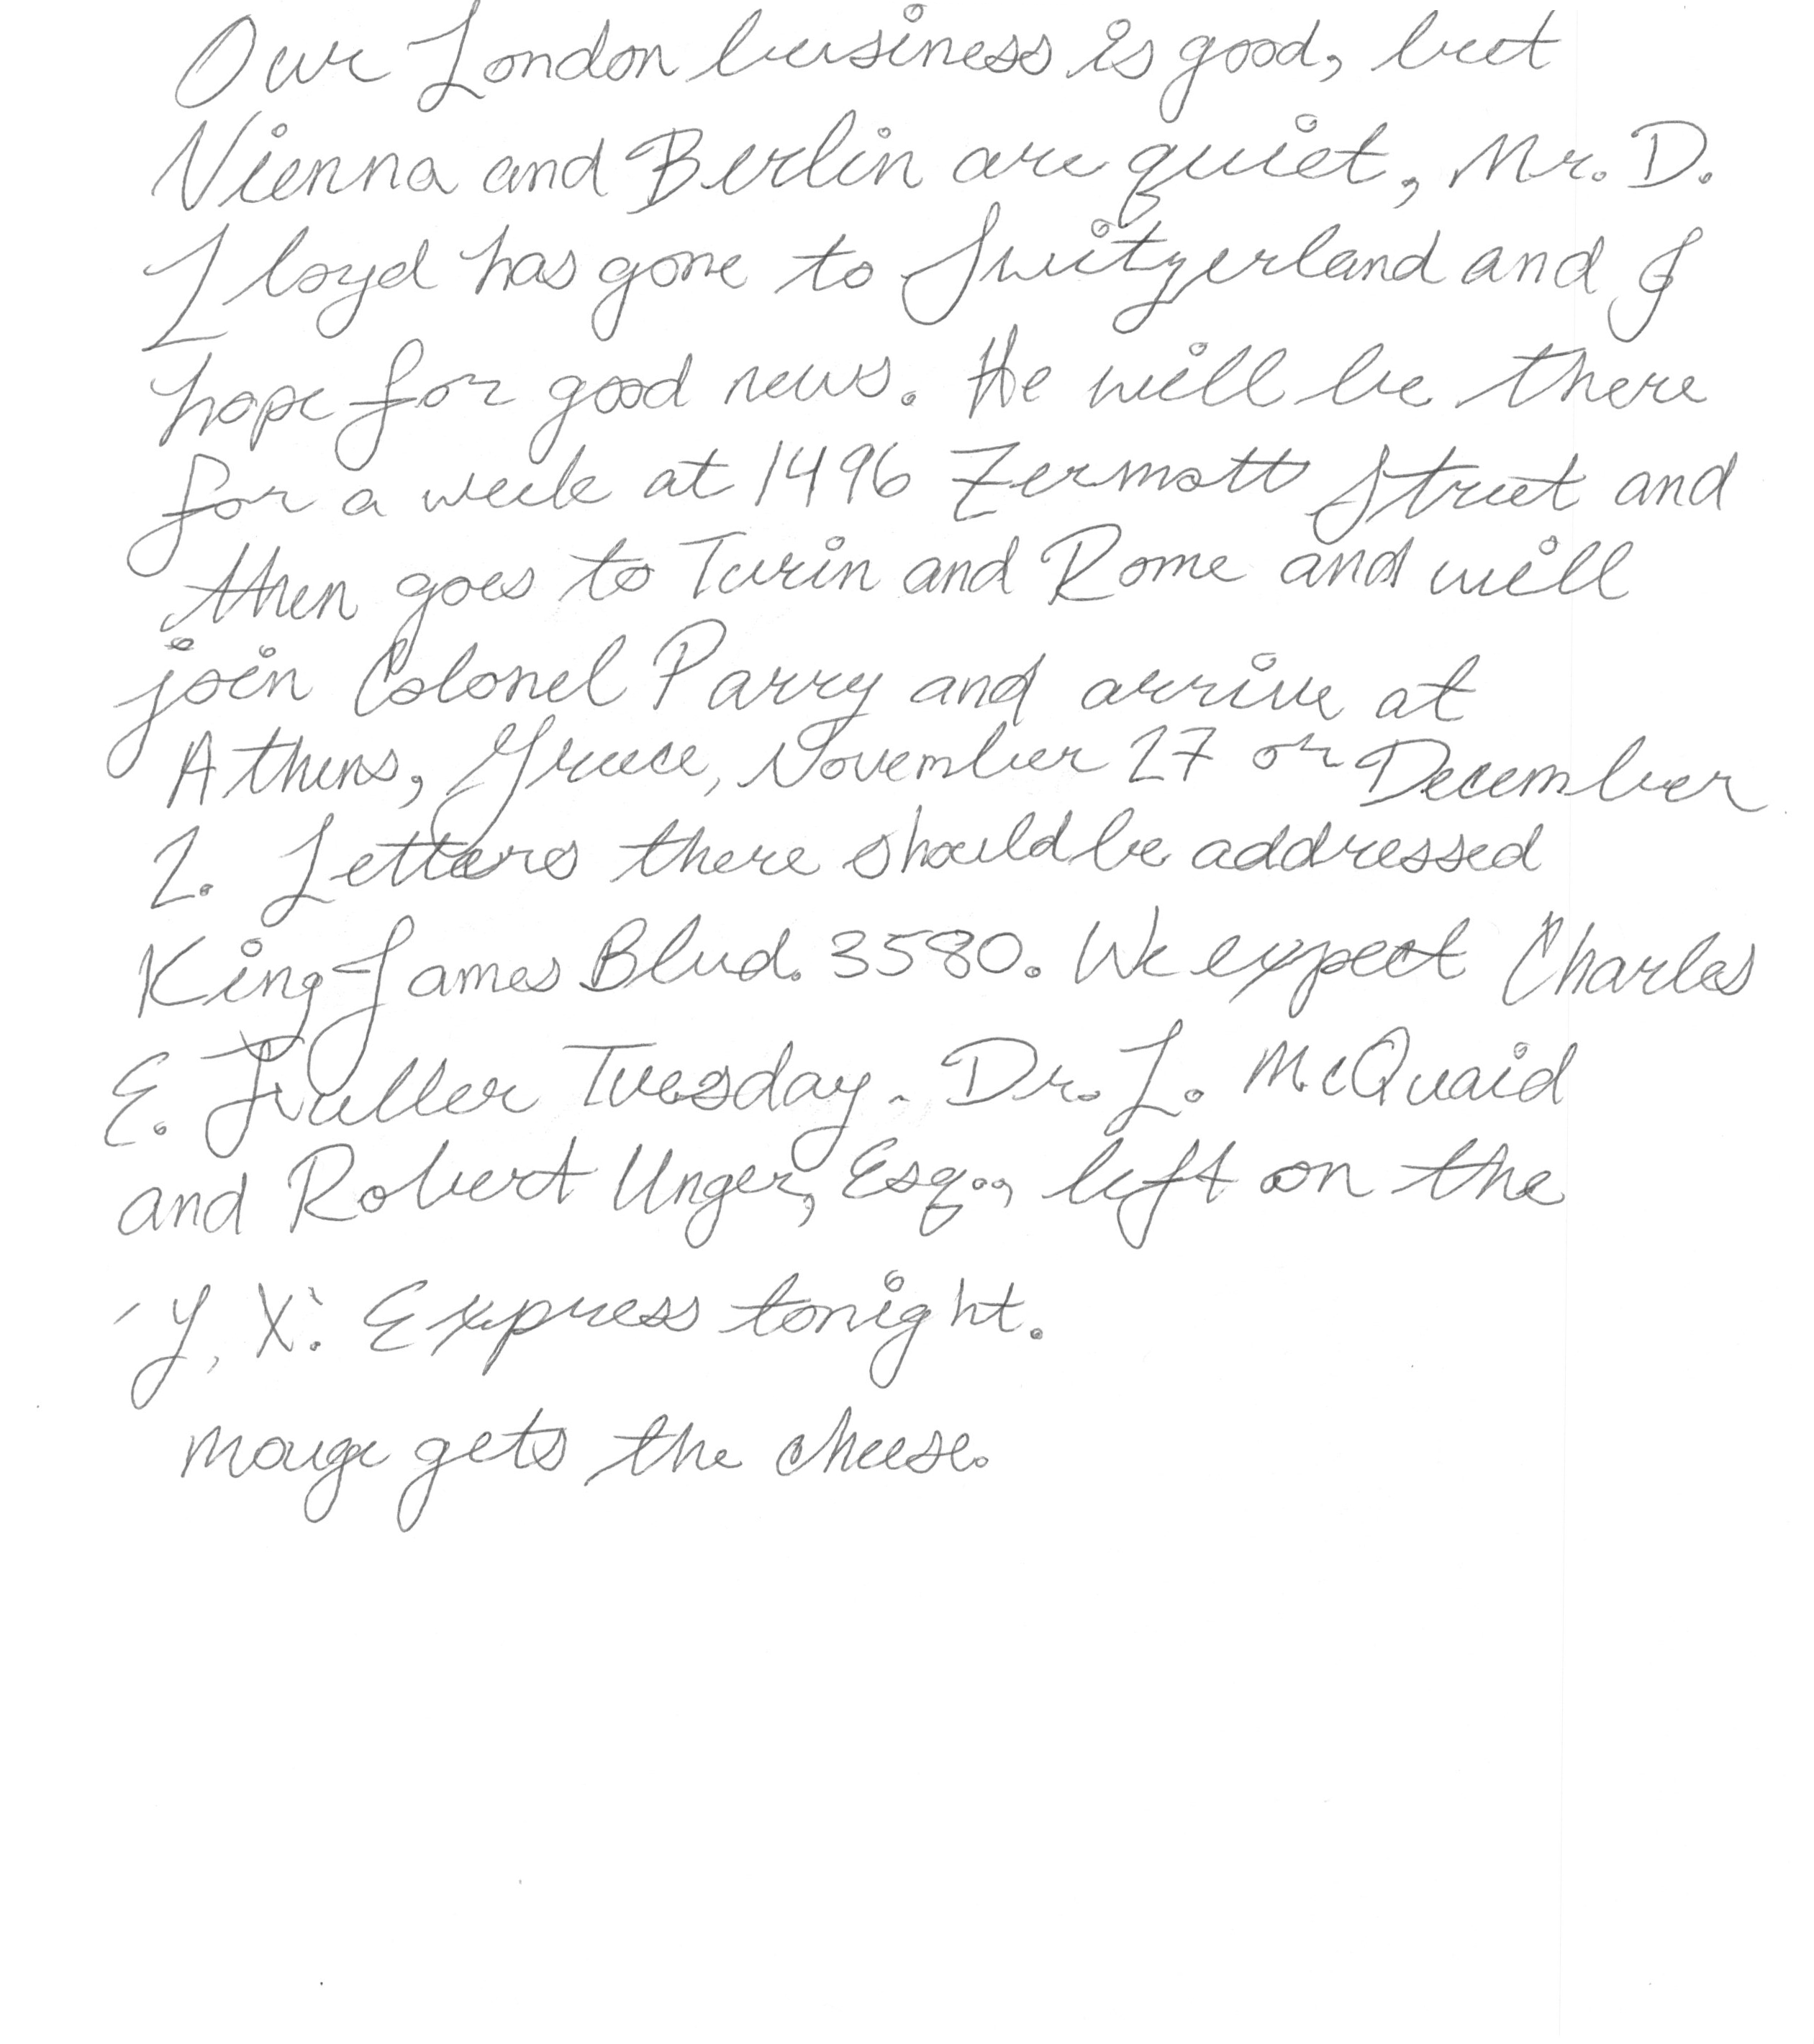 Our London business is good, but
Vienna and Berlin are quiet, Mr. D.
Lloyd has gone to Switzerland and I
hope for good news. He will be there
for a week at 1496 Zermott Street and
then goes to Turin and Rome and will
join Colonel Parry and arrive at
Athens, Greece, November 27 or December
2. Letters there should be addressed
King James Blvd. 3580. We expect Charles
E. Fuller Tuesday. Dr. L. McQuaid
and Robert Unger, Esq., left on the
Y. X. Express tonight.
gets the cheese.